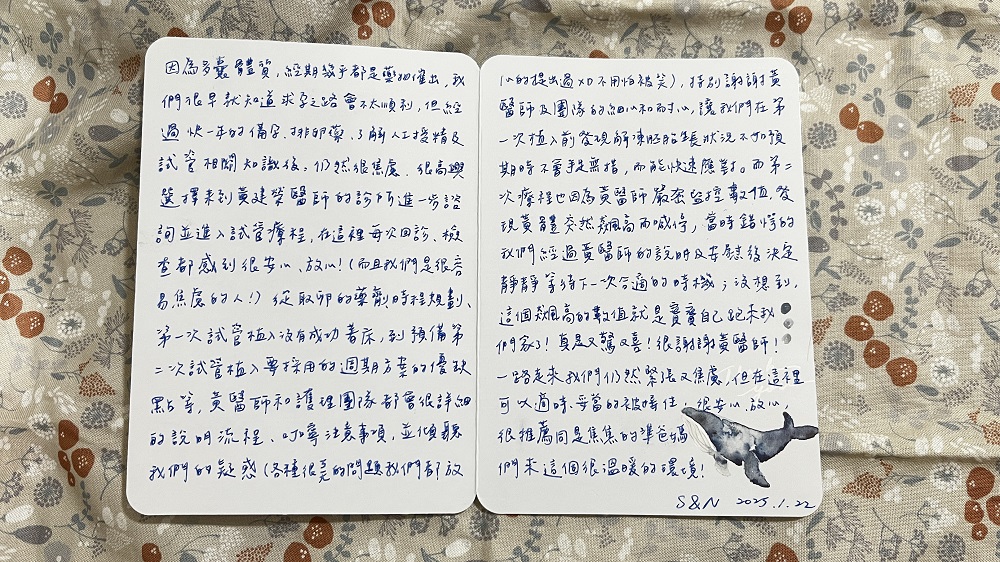 因為多囊體質，經期幾乎都是藥物催出，我
們很早就知道求子之路會不太順利，但經
過快一年的備孕、排卵藥、了解人工授精及
試管相關知識後，仍然很焦慮、很高興
選擇來到黃建榮醫師的診所進一步諮
詢並進入試管療程，在這裡每次回診、檢
查都感到很安心、放心！（而且我們是很容
易焦慮的人！）從取卵的藥劑時程規劃、
第一次試管植入沒有成功著床，到預備第
二次試管植入要採用的週期方案的優缺
點等，黃醫師和護理團隊都會很詳細
的說明流程、叮嚀注意事項，並傾聽
我們的疑惑（各種很亮的問題我們都放
心的提出過XD不用怕被笑），特別謝謝黃
醫師及團隊的細心和耐心，讓我們在第
一次植入前發現解凍胚胎生長狀況不如預
期時不會手足無措，而能快速應對。而第二
次療程也因為黃醫師嚴密監控數值，發
現黃體突然飆高而喊停，當時錯愕的
我們經過黃醫師的說明及安慰後決定
靜靜等待下一次合適的時機；沒想到，
這個飆高的數值就是寶寶自己跑來我
們家了！真是又驚又喜！很謝謝黃醫師！
一路走來我們仍然緊張又焦慮，但在這裡
可以適時、妥當的被接住，很安心、放心，
很推薦同是焦焦的準爸媽
們來這個很溫暖的環境！
S&N 2025.1.22